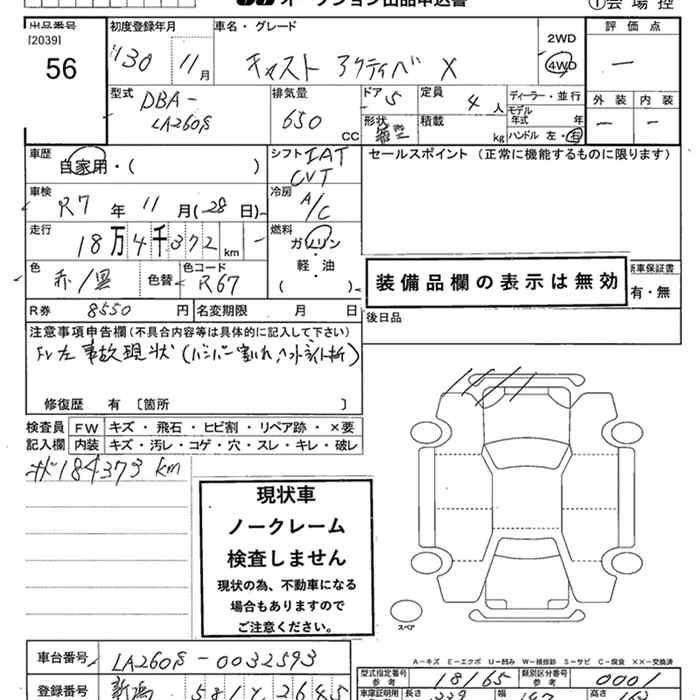 オークション出品申込書
①会場控
出品番号
[2039]
56
初度登録年月
H30 11月
車名・グレード
キャスト アクティバ X
2WD
4WD
評価点
ー
型式
DBA-
LA260S
排気量
650 CC
ドア 5
形状
定員 4人
積載 kg
ディーラー・並行
モデル年式 年
ハンドル 左・右
外装 内装
ー ー
車歴
自家用・( )
シフト IAT
CVT
セールスポイント (正常に機能するものに限ります)
車検
R7年11月(28日)
冷房
A/C
走行
18万4千372km
燃料
ガソリン
・
軽・油
( )
色
赤/黒
色替
色コード
R67
装備品欄の表示は無効
新車保証書
有・無
R券 8550円
名変期限 月 日
後日品
注意事項申告欄(不具合内容等は具体的に記入して下さい)
Fr左 事故現状 (バンパー割れ、ヘッドライト折)
修復歴 有 〔箇所 〕
検査員
記入欄
FW キズ・飛石・ヒビ割・リペア跡・×要
内装 キズ・汚レ・コゲ・穴・スレ・キレ・破レ
184373 km
現状車
ノークレーム
検査しません
現状の為、不動車になる
場合もありますので
ご注意ください。
スペア
A-キズ E-エクボ U-凹み W-補修跡 S-サビ C-腐食 ××-交換済
車台番号 LA260S-0032593
型式指定番号 参考 18165
類別区分番号 参考 0001
登録番号 新潟 581
車庫証明用 参考
長さ 339
幅 147
高さ 163